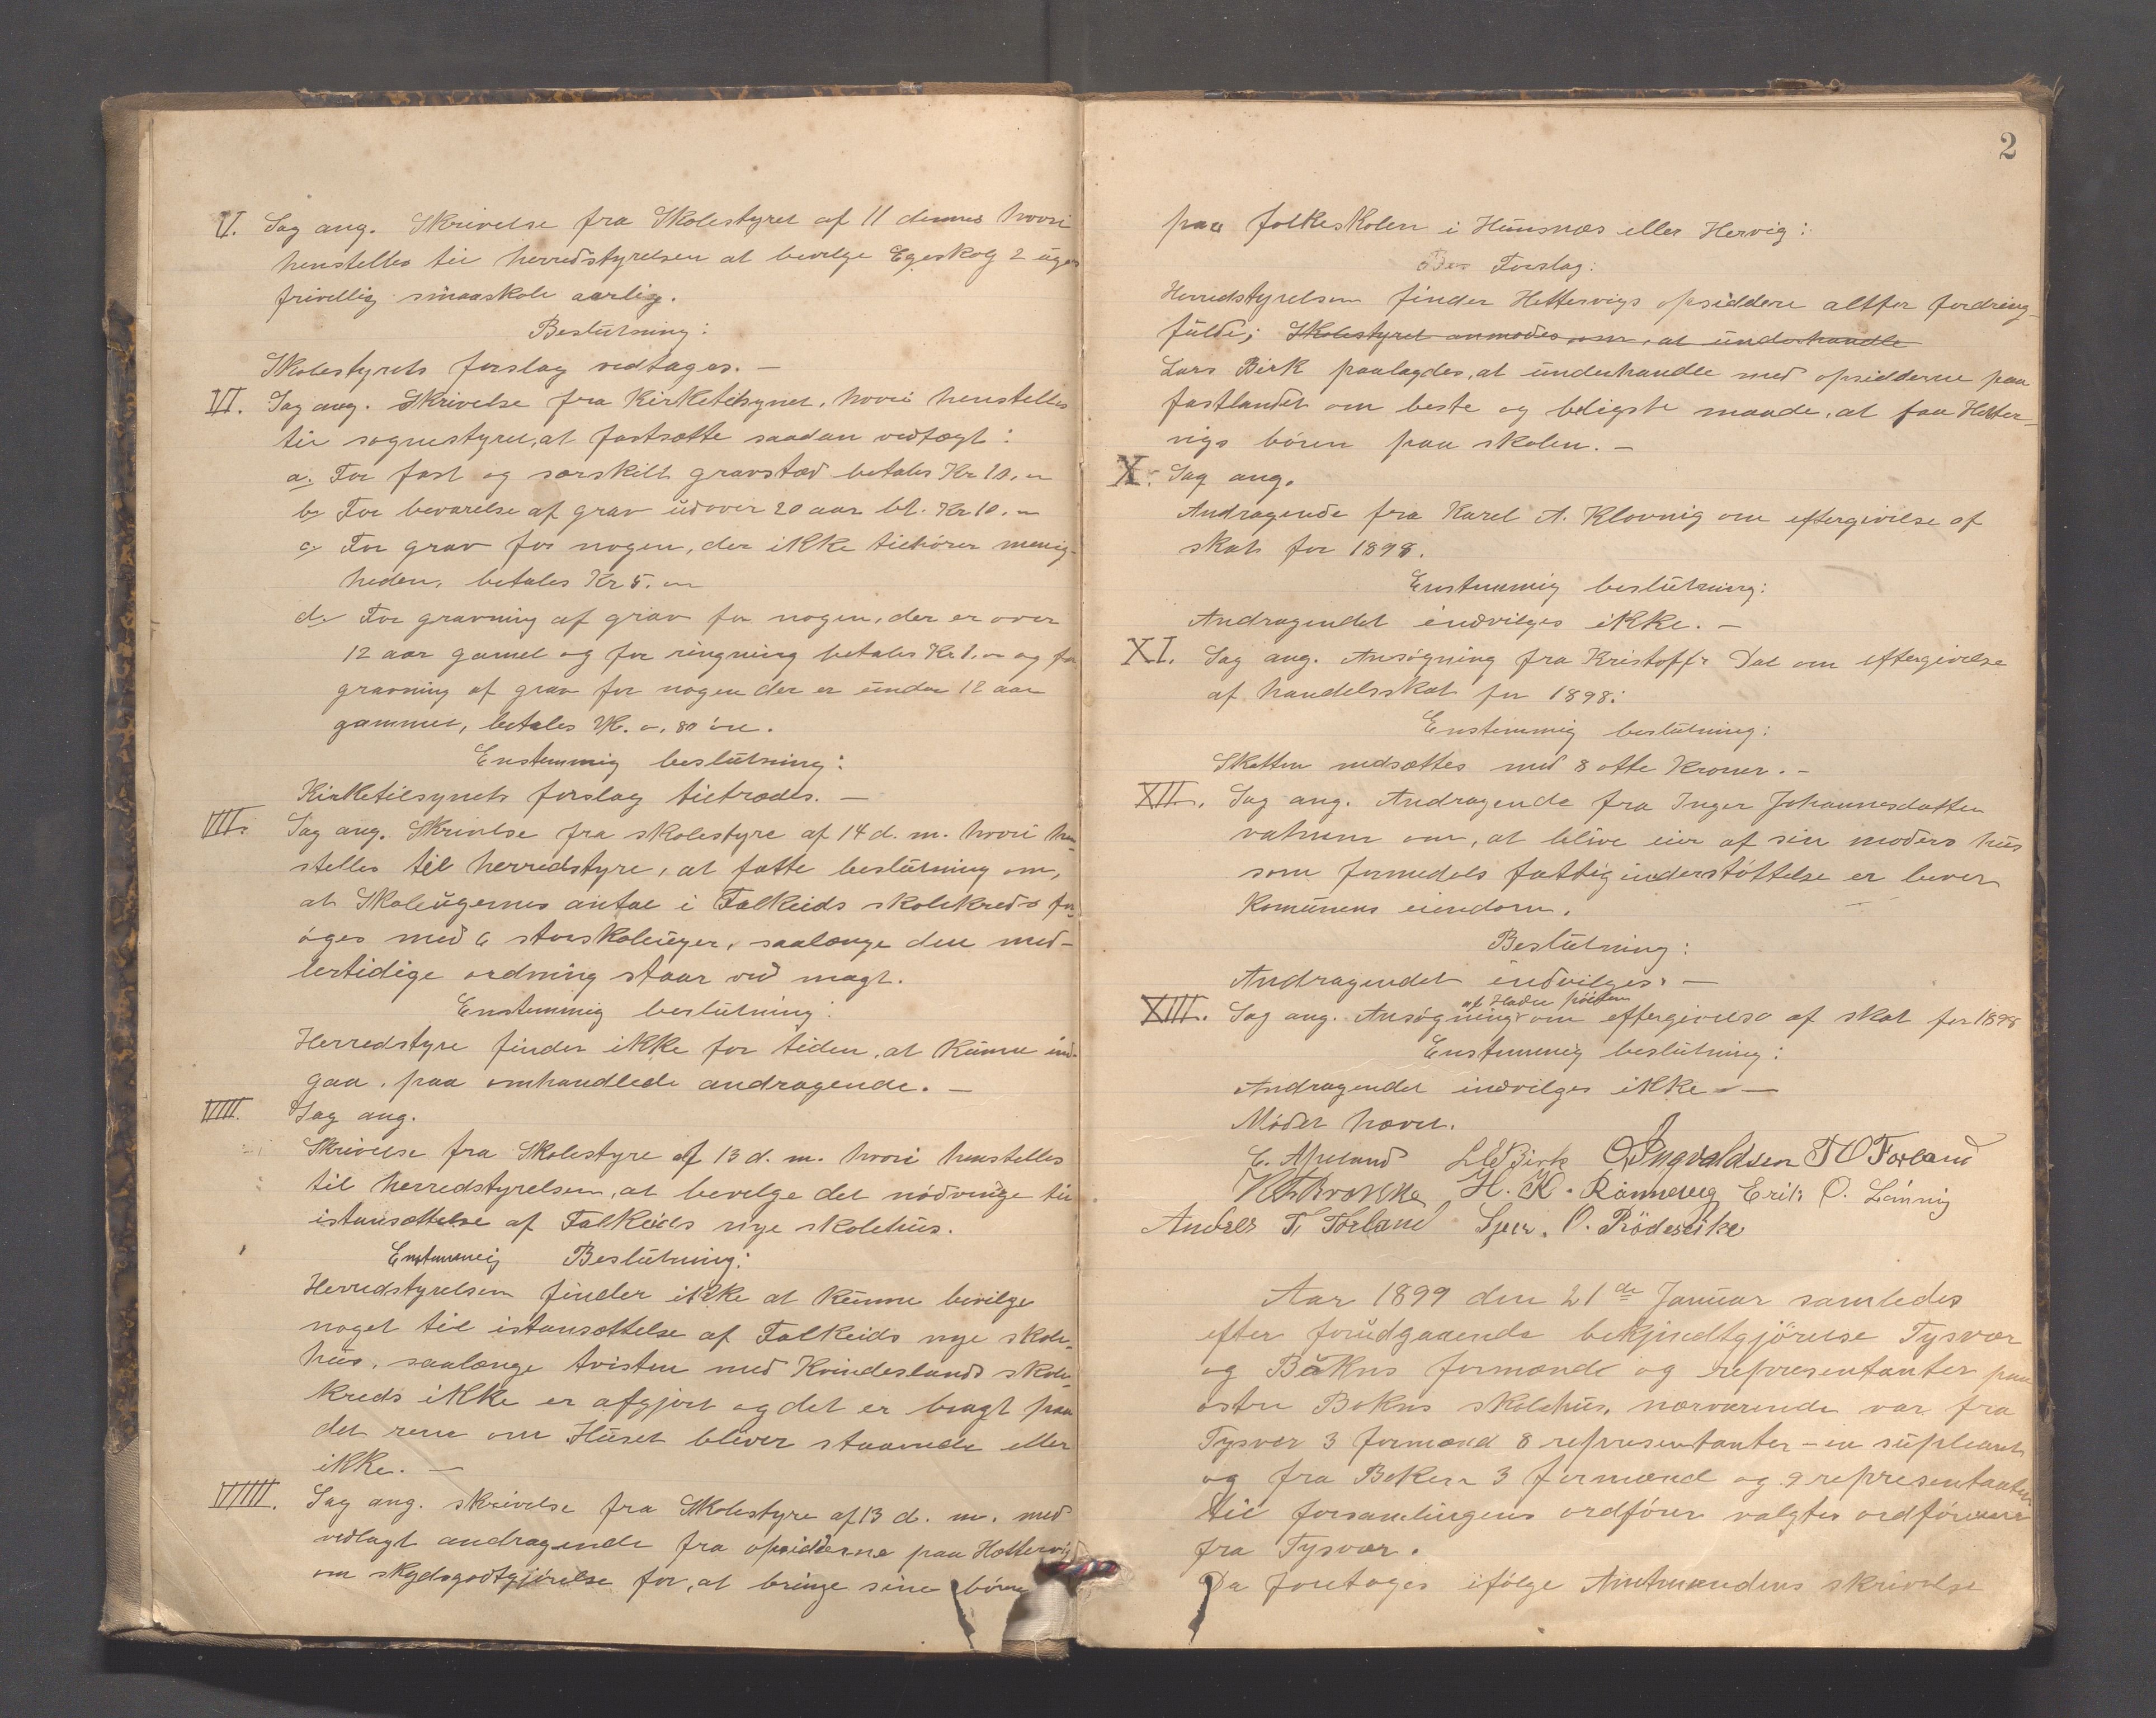 V. Sag ang. Skrivelse fra Skolestyret af 11 dennes hvori
henstelles til herredstyrelsen at bevilge Egeskog 2 ugers
frivellig smaaskole aarlig.
Beslutning:
Skolestyrets forslag vedtages. —
VI. Sag ang. Skrivelse fra Kirketilsynet, hvori henstelles
til sognestyret, at fastsætte saadan vedtægt:
a. For fast og særskilt gravstæd betales Kr 10. „
b. For bevarelse af grav udover 20 aar bt. Kr 10. „
c. For grav for nogen, der ikke tilhører menig-
heden, betales Kr 5. „
d. For gravning af grav for nogen, der er over
12 aar gamel og for ringning betales Kr 1. „ og for
gravning af grav for nogen der er under 12 aar
gammel, betales Kr. 0, 80 øre.
Enstemmig beslutning:
Kirketilsynets forslag tiltrædes. —
VII. Sag ang. Skrivelse fra skolestyre af 14 d. m. hvori hen-
stelles til herredstyre, at fatte beslutning om,
at Skoleugernes antal i Falkeids skolekreds for-
øges med 6 storskoleuger, saalænge den med-
lertidige ordning staar ved magt.
Enstemmig beslutning:
Herredstyre finder ikke for tiden, at kunne ind-
gaa, paa omhandlede andragende. —
VIII. Sag ang.
Skrivelse fra Skolestyre af 13 d. m. hvori henstelles
til herredstyrelsen, at bevelge det nødvendige til
istansættelse af Falkeids nye skolehus.
Enstemmig Beslutning:
Herredstyrelsen finder ikke at kunne bevilge
noget til istansættelse af Falkeids nye skole-
hus, saalænge tvisten med Kvindeslands skole-
kreds ikke er afgjort og det er bragt paa
det rene om Huset bliver staaende eller
ikke. —
VIIII. Sag ang. skrivelse fra Skolestyre af 13 d. m. med
vedlagt andragende fra opsidderne paa Hettervig
om skydsgodtgjørelse for, at bringe sine børn
2
paa folkeskolen i Hunsnæs eller Hervig:
Forslag:
Herredstyrelsen finder Hettervigs opsiddere altfor fordring-
fulde; Skolestyret anmodes om, at underhandle
Lars Birk paalagdes, at underhandle med opsidderne paa
fastlandet om beste og beligste maade, at faa Hetter-
vigs børn paa skolen. —
X. Sag ang.
Andragende fra Karel A. Klovnig om eftergivelse af
skat for 1898.
Enstemmig beslutning:
Andragendet indvilges ikke. —
XI. Sag ang. Ansøgning fra Kristoffr Dal om eftergivelse
af handelsskat for 1898:
Enstemmig beslutning:
Skatten nedsættes med 8 otte Kroner. —
XII. Sag ang. Andragende fra Inger Johannesdatter
om, at blive eier af sin moders hus
som formedels fattigunderstøttelse er bleven
Komunens eiendom.
Beslutning:
Andragendet indvilges. —
XIII. Sag ang. Ansøgning af om eftergivelse af skat for 1898
Enstemmig beslutning:
Andragendet indvilges ikke —
Mødet hævet.
C. Apeland L Birk O Ingvaldsen T O Førland
H. K. Rønnevig Erik O. Lønnig
Andres T. Førland Sjur. O. Rødeseike
Aar 1899 den 21de Januar samledes
efter forudgaaende bekjendtgjørelse Tysvær
og Bokns formænd og representanter paa
østre Bokns skolehus, nærværende var fra
Tysvær 3 formænd 8 representanter – en supleant
og fra Boken 3 formænd og 9 representanter
til forsamlingens ordfører valgtes ordføreren
fra Tysvær.
Da foretoges ifølge Amtmandens skrivelse